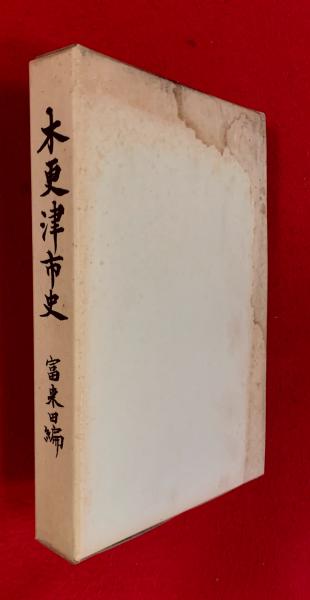 木更津市史
富来田編